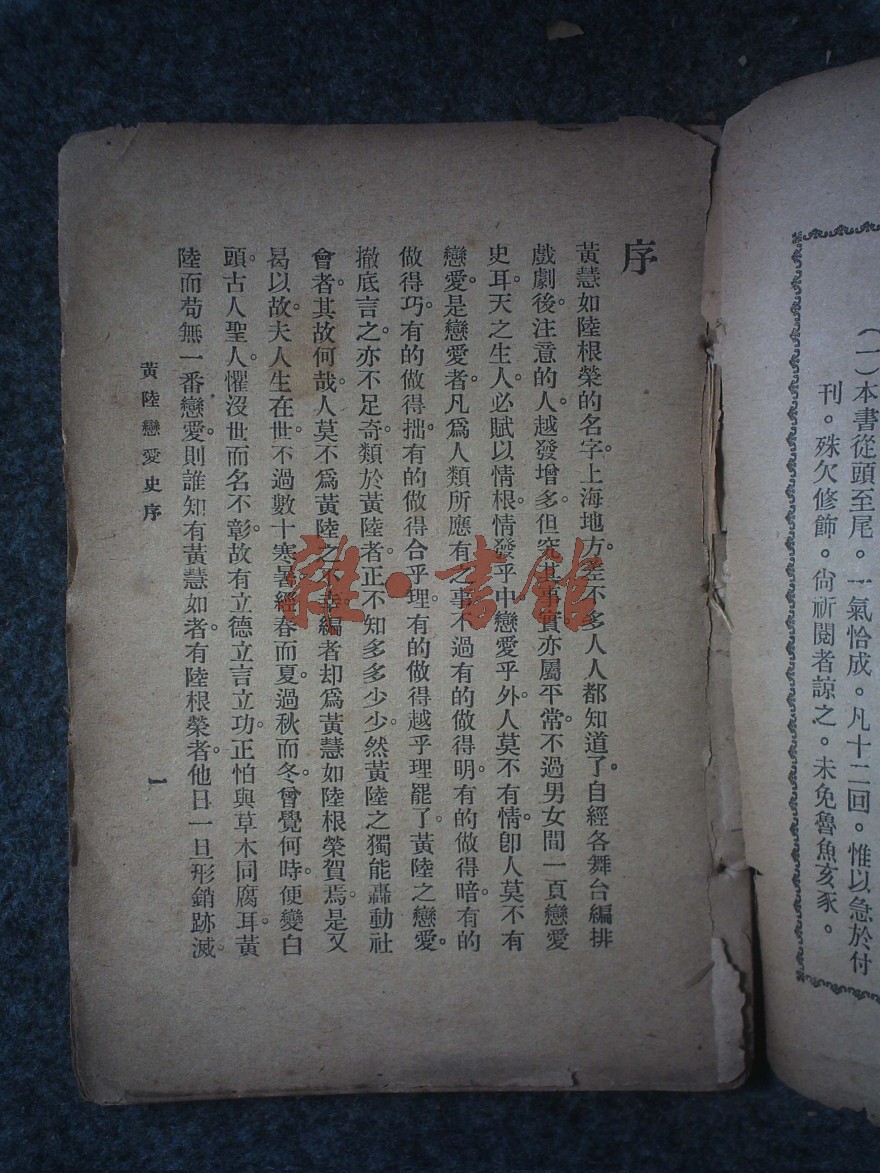 (一)本書從頭至尾。一氣恰成。凡十二回。惟以急於付
刊。殊欠修飾。尙祈閱者諒之。未免魯魚亥豕。
序
黃慧如陸根榮的名字。上海地方。差不多人人都知道了。自經各舞台編排
戲劇後。注意的人。越發增多。但究其事實。亦屬平常。不過男女間一頁戀愛
史耳。天之生人。必賦以情根。情發乎中。戀愛乎外。人莫不有情。卽人莫不有
戀愛。是戀愛者。凡爲人類所應有之事。不過有的做得明。有的做得暗。有的
做得巧。有的做得拙。有的做得合乎理。有的做得越乎理罷了。黃陸之戀愛。
撤底言之。亦不足奇。類於黃陸者。正不知多多少少。然黃陸之獨能轟動社
會者。其故何哉。人莫不爲黃陸之不幸。編者却爲黃慧如陸根榮賀焉。是又
曷以故。夫人生在世。不過數十寒暑。經春而夏。過秋而冬。曾覺何時。便變白
頭。古人聖人。懼沒世而名不彰。故有立德立言立功。正怕與草木同腐耳。黃
陸而苟無一番戀愛。則誰知有黃慧如者。有陸根榮者。他日一旦形銷跡滅。
黃陸戀愛史序
一
雜·書館